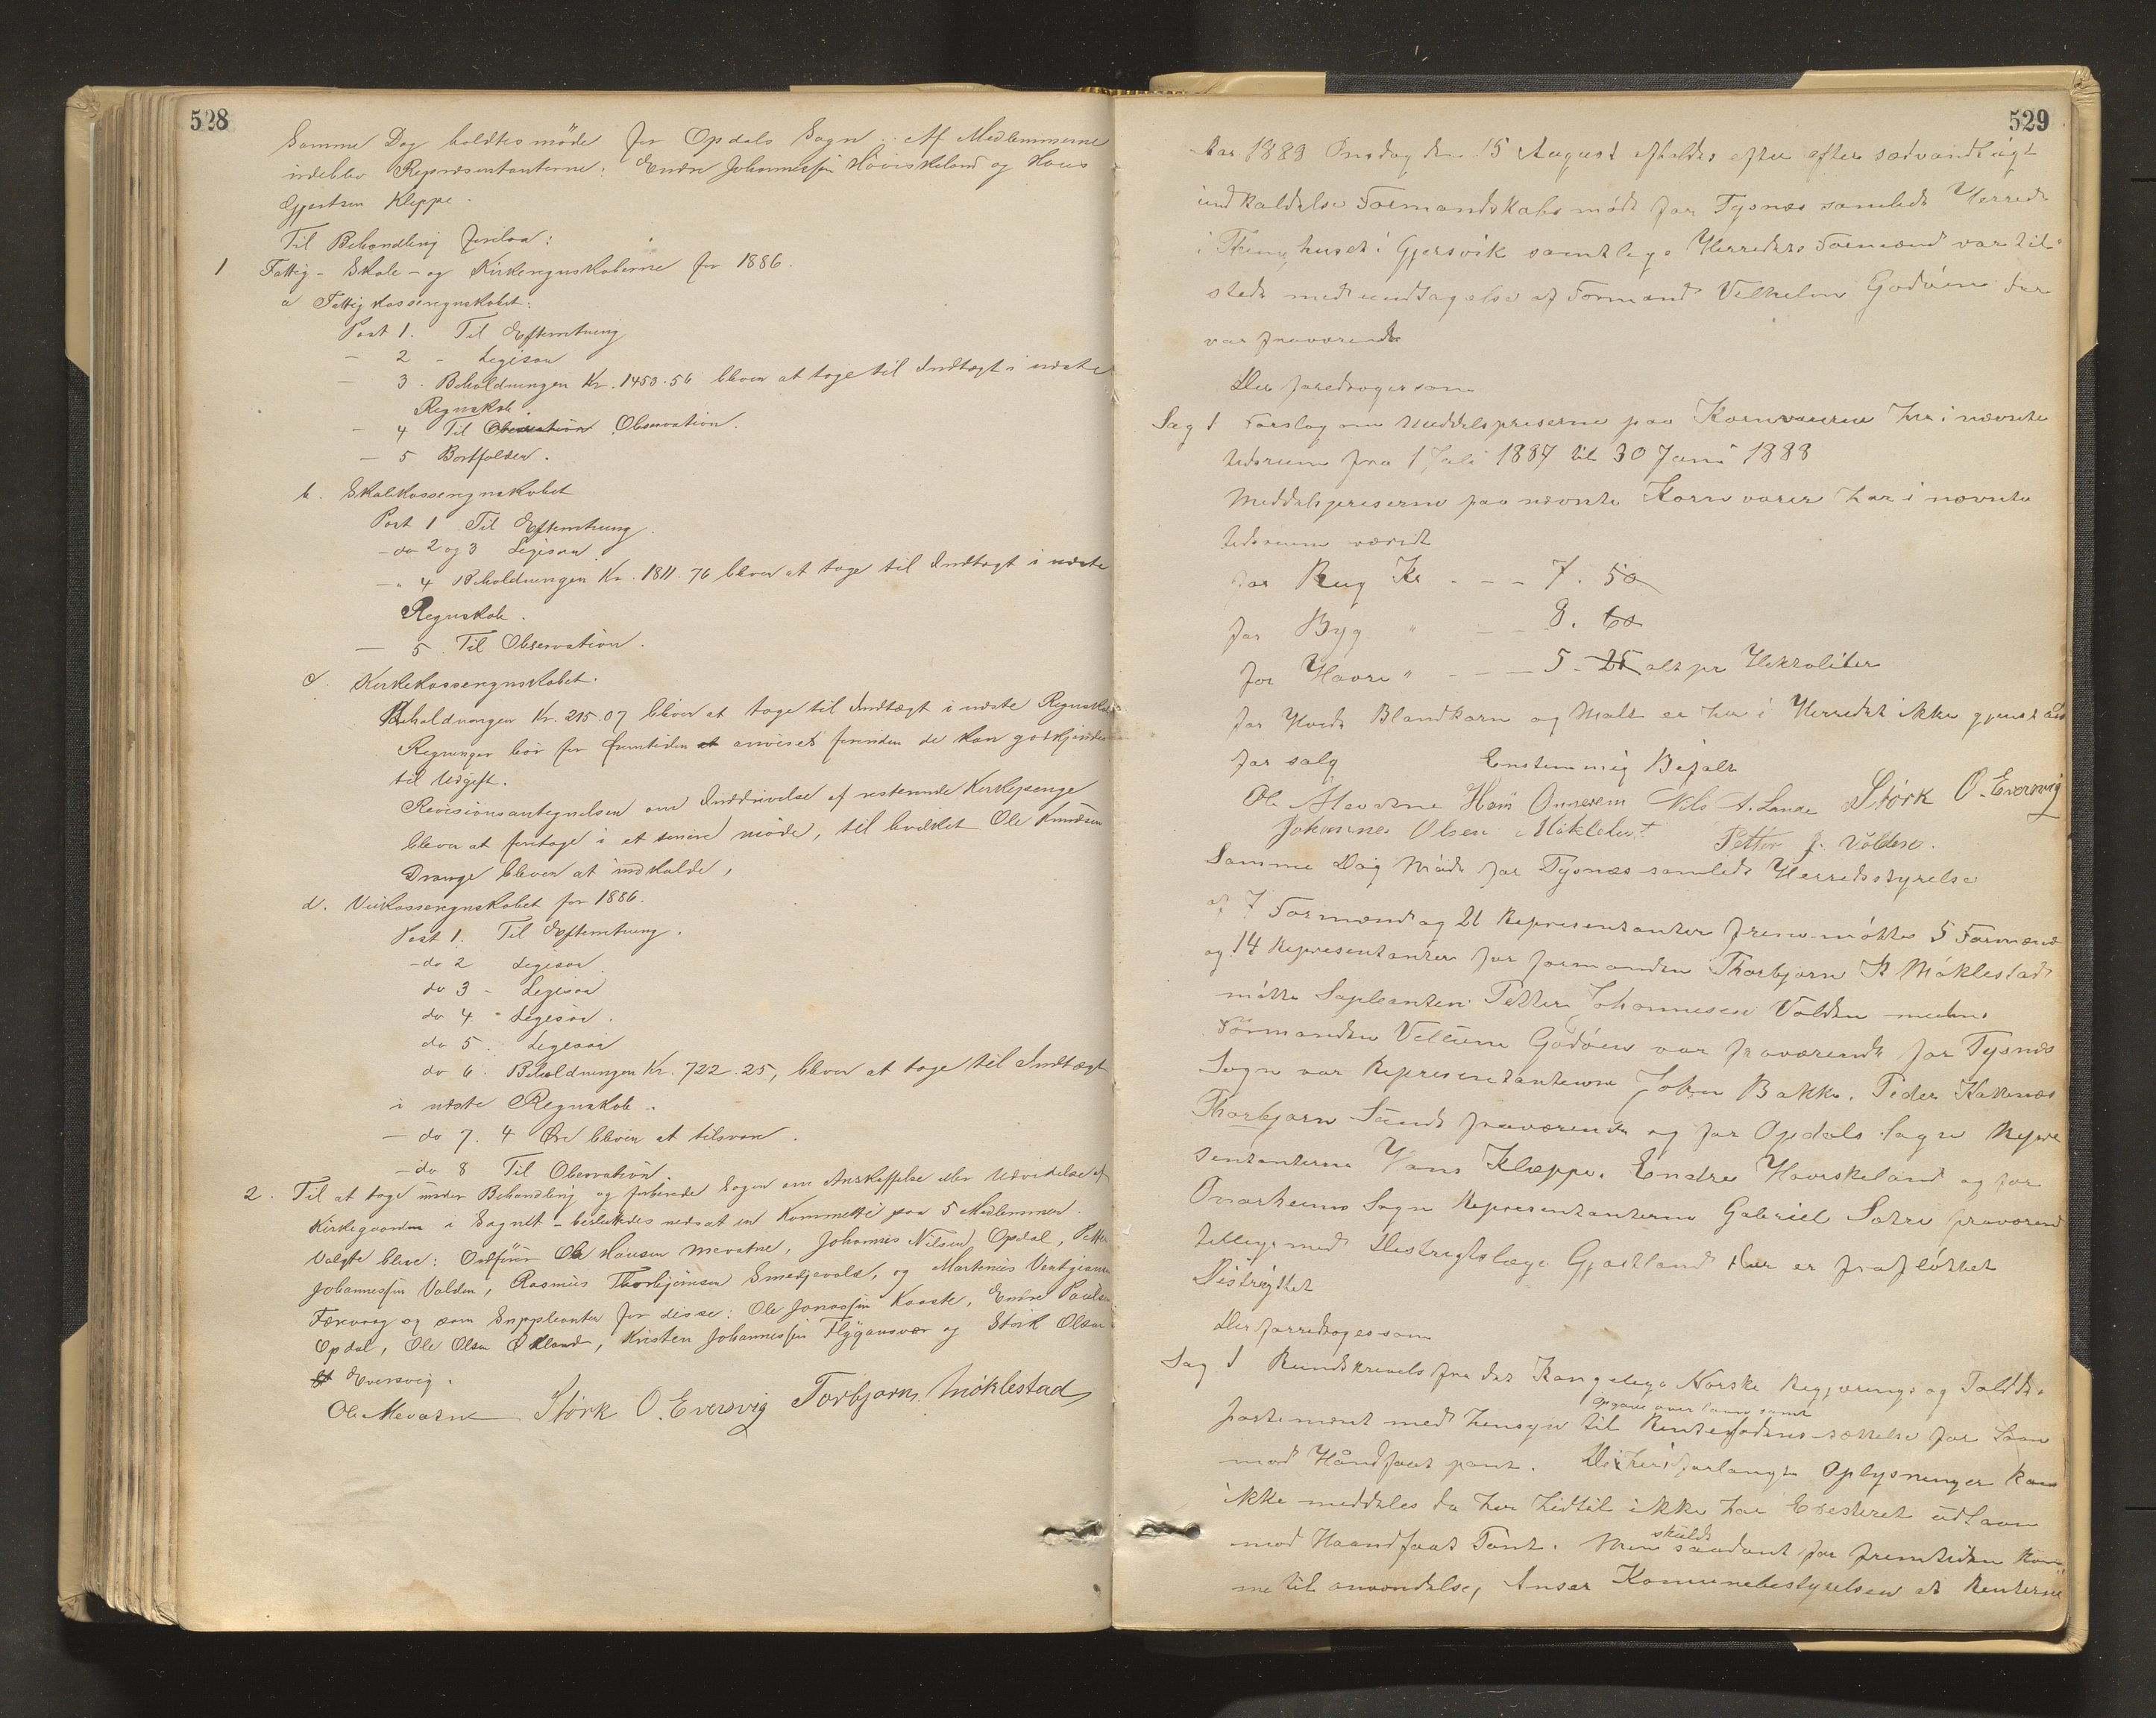 528
Samme Dag holdtes möde for Opdals Sogn. Af Medlemmerne
udeblev Repræsentanterne: Endre Johannessen Hövskeland og Hans
Gjertsen Kleppe.
Til Behandling forelaa:
1 Fattig- Skole- og Kirkeregnskaberne for 1886.
a Fattigkasseregnskabet:
Post 1. Til Efterretning
- 2 - Ligesaa
- 3. Beholdningen Kr. 1450.56 bliver at tage til Indtægt i næste
Regnskab.
- 4 Til Observation Observation.
- 5 Bortfalder.
b. Skolekasseregnskabet
Post 1 Til Efterretning.
- do 2 og 3 Ligesaa.
- " 4 Beholdningen Kr. 1811.76 bliver at tage til Indtægt i næste
Regnskab.
- 5. Til Observation.
c. Kirkekasseregnskabet.
Beholdningen Kr. 215.07 bliver at tage til Indtægt i næste Regnskab
Regninger bör for Fremtiden at anvises forinden de kan godkjendes
til Udgift.
Revisionsantegnelsen om Inddrivelse af resterende Kirkepenge
bliver at foretage i et senere möde, til hvilket Ole Knudsen
Drange bliver at indkalde,
d. Veikasseregnskabet for 1886.
Post 1. Til Efterretning.
- do 2 Ligesaa
do 3 - Ligesaa
do 4 " Ligesaa.
do 5. Ligesaa
do 6. Beholdningen Kr. 722.25, bliver at tage til Indtægt
i næste Regnskab.
- do 7. 4 Öre bliver at tilsvare.
- do 8 Til Observation
2. Til at tage under Behandling og forberede Sagen om Anskaffelse eller Udvidelse af
Kirkegaarden i Sognet - besluttedes nedsat en Kommitté paa 5 Medlemmer.
Valgte bleve: Ordförer Ole Hansen Mevatne, Johannes Nilsen Opdal, Petter
Johannessen Valden, Rasmus Thorbjörnsen Smedjevold, og Martinus
Færevaag og som Suppleanter for disse: Ole Jonassen Kaaste, Endre Paulsen
Opdal, Ole Olsen Ökland, Kristen Johannessen Flygansvær og Störk Olsen
Eversvig.
Ole Mevatne Störk O. Eversvig Torbjörn Möklestad
529
Aar 1888 Onsdag den 15 August afholdes efter efter sædvandligt
indkaldelse Formandskabs möde for Tysnæs samlede Herrede
i Thinghuset i Gjersvik samtlege Herredets Formænd var til-
stede med undtagelse af Formand Vilhelm Godöen der
var fraværende
Der foredroges som
Sag 1 Forslag om Middelspriserne paa Kornvarerne her i nævnte
tidsrum fra 1 Juli 1887 til 30 Juni 1888
Middelspriserne paa nævnte Kornvarer har i nævnte
tidsrum værit
for Rug Kr - - - 7. 50
for Byg " - - 8. 60
for Havre " - - - 5. 25 alt pr Hektoliter
for Hvede Blandkorn og Malt er her i Herredet ikke gjenstand
for salg Enstemmig Bifalt
Ole Mevatne Hans Onnerem Nils A. Lande Störk O. Eversvig
Johannes Olsen Möklebust Petter J. Volden.
Samme Dag Möde for Tysnæs samlede Herredsstyrelse
af 7 Formænd og 21 Representanter fremmötte 5 Formænd
og 14 Representanter for formanden Thorbjorn Möklestad
mötte Supleanten Petter Johannesen Volden medens
Formanden Vellum Godöen var fraværende for Tysnæs
Sogn var Representanterne John Bakke. Peder Kattenæs
Thorbjorn Sunde fraværende og for Opdals Sogn Repre
sentanterne Hans Kleppe. Endre Hovskeland og for
Onarheims Sogn Representanterne Gabriel Sætre fraværend
tillegemed Distrigtslæge Gjestland der er fraflöttet
Distrigtet
Der forredroges som
Sag 1 Rundskrivels fra det Kongelige Norske Regjerings og Told De-
opgave over laan samt
partement med hensyn til Rentefodens sættelse for Laan
mod Håndfaat pant. De her forlangte Oplysninger kan
ikke meddeles da her hidtil ikke har Eksisteret udlaan
skulde
mod Haandfaat Pant. Men saadant for fremtiden kom-
me til anvendelse, Anser Komunebestyrelsen at Renterne